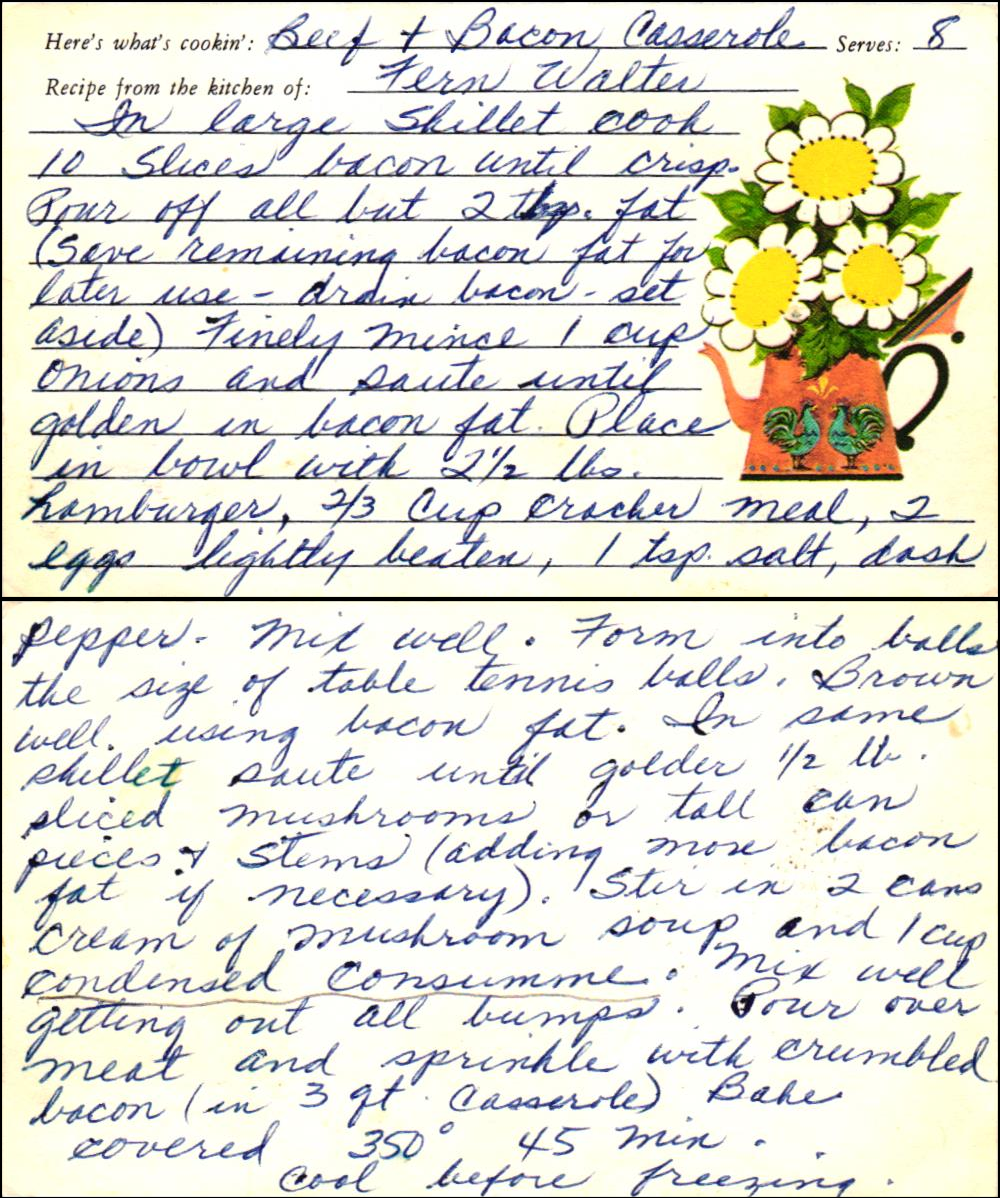 Here's what's cookin': Beef + Bacon Casserole Serves: 8
Recipe from the kitchen of: Fern Walter
In large Skillet cook
10 Slices bacon until crisp.
Pour off all but 2 tbsp. fat
(Save remaining bacon fat for
later use - drain bacon - set
aside) Finely mince 1 cup
Onions and saute until
golden in bacon fat. Place
in bowl with 2 1/2 lbs.
hamburger, 2/3 Cup Cracker meal, 2
eggs lightly beaten, 1 tsp. salt, dash
pepper - Mix well. Form into balls
the size of table tennis balls. Brown
well. using bacon fat. In same
skillet saute until golder 1/2 lb.
sliced mushrooms or tall can
pieces & Stems (adding more bacon
fat if necessary). Stir in 2 cans
cream of mushroom soup and 1 cup
condensed Consumme. Mix well
getting out all bumps. Pour over
meat and sprinkle with crumbled
bacon (in 3 qt. Casserole) Bake
covered 350° 45 min.
Cool before freezing.